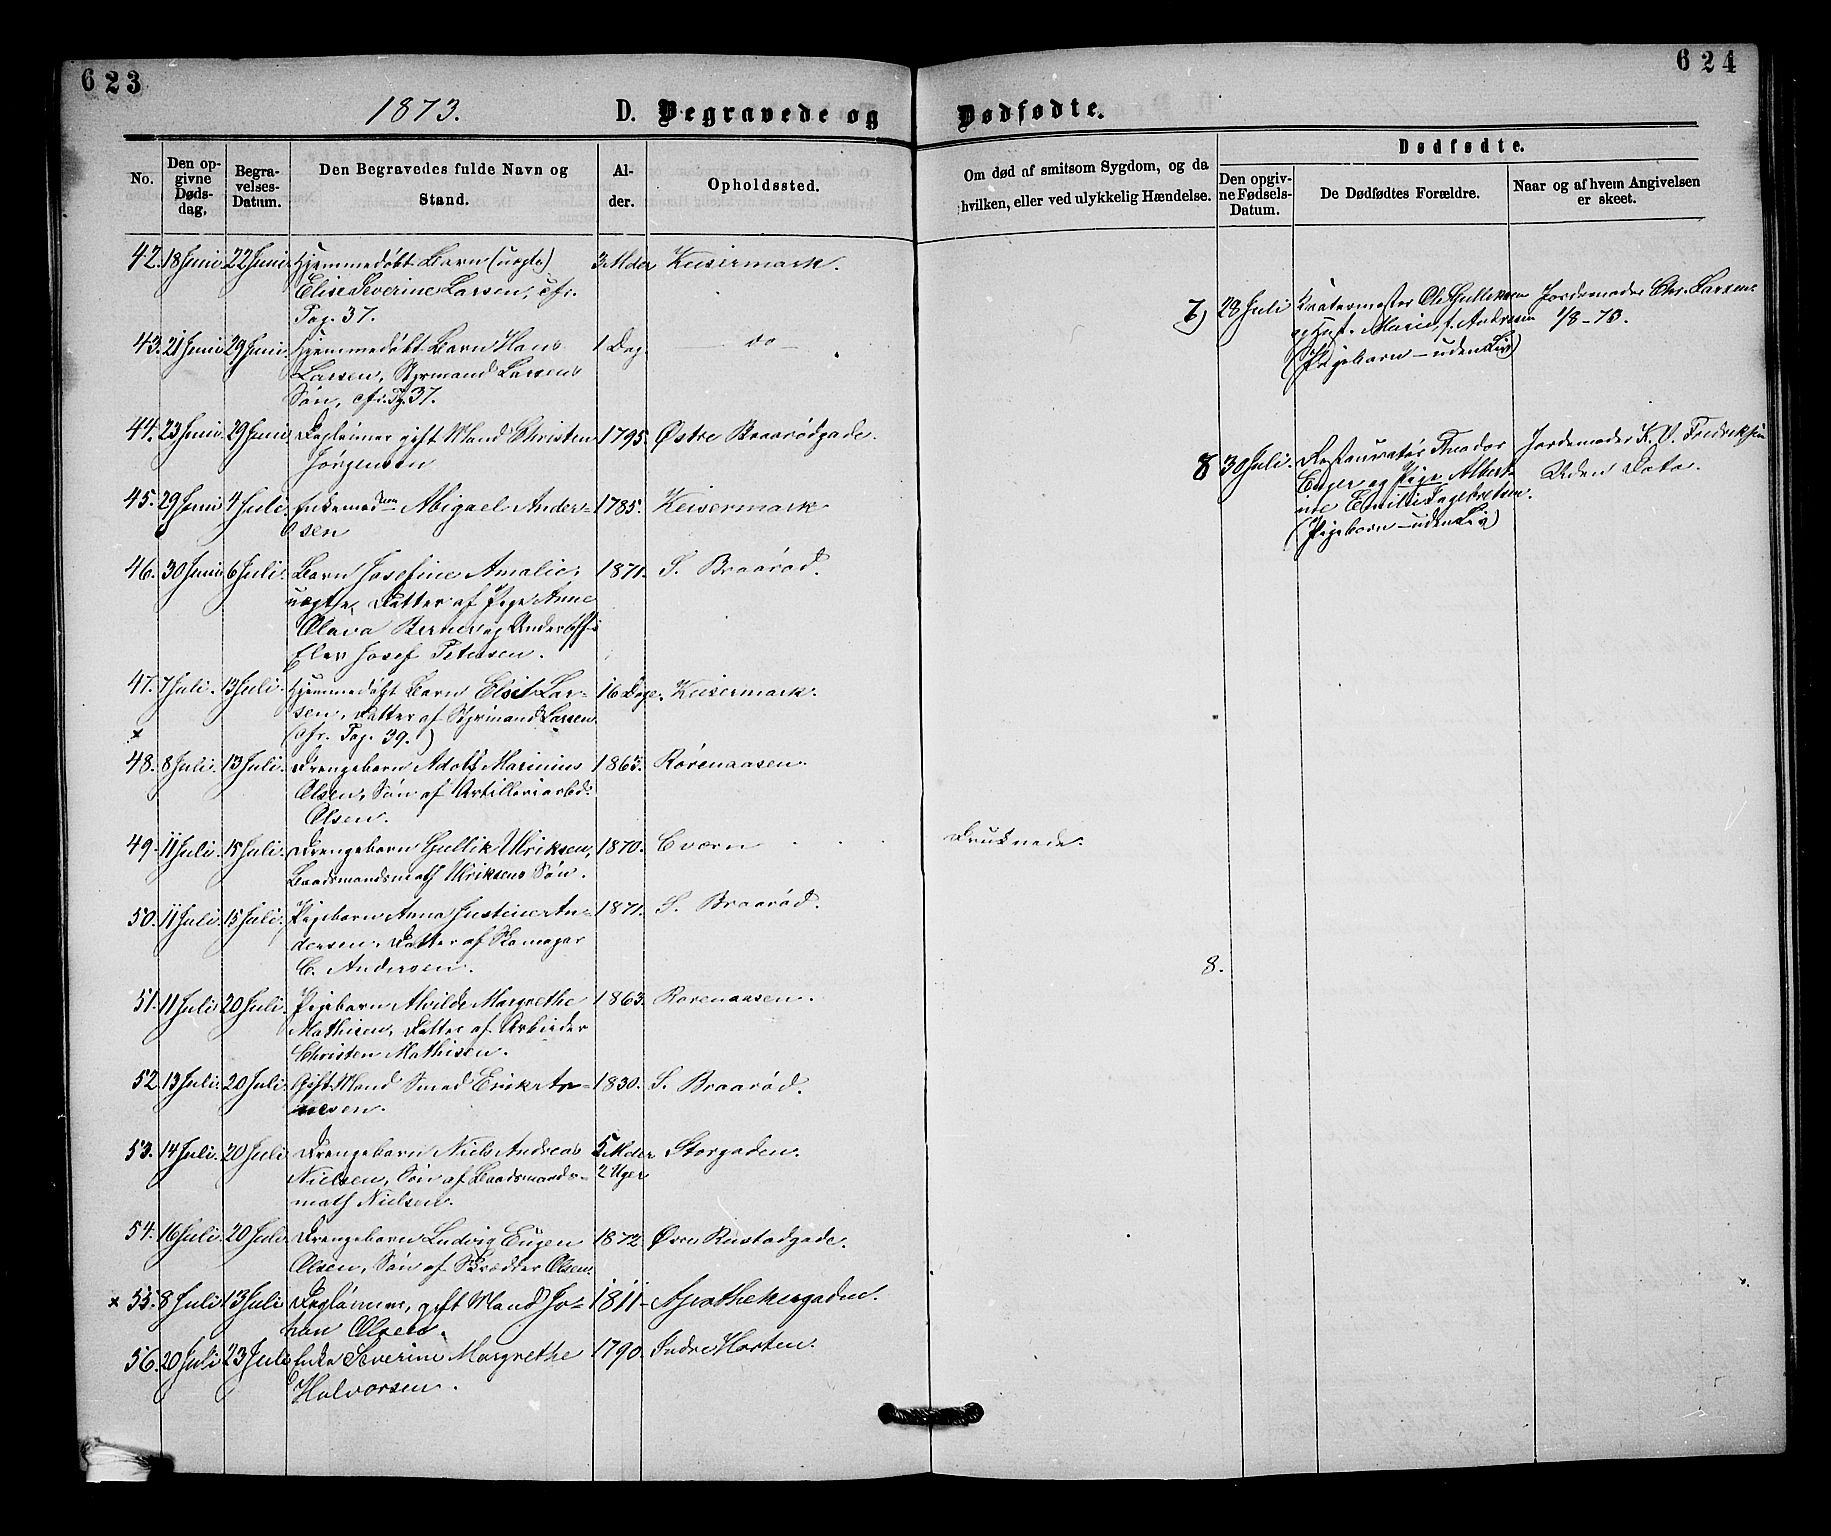 623
624
1873.
D. Begravede og Dødfødte.
No.
Den opgivne Dødsdag.
Begravelses-Datum.
Den Begravedes fulde Navn og Stand.
Alder.
Opholdssted.
Om død af smitsom Sygdom, og da hvilken, eller ved ulykkelig Hændelse.
Dødfødte.
Den opgivne Fødsels-Datum.
De Dødfødtes Forældre.
Naar og af hvem Angivelsen er skeet.
42. 18 Juni 22 Juni Hjemmedøbt Barn (uægte) 3 Mdr Keisermark.
Elise Severine Larsen, cfr.
Pag. 37.
43. 21 Juni 29 Juni Hjemmedøbt Barn Hans 1 Dag. — do —
Larsen, Styrmand Larsens
Søn, cfr. Pg. 37.
44. 23 Juni 29 Juni Dagleiner gift Mand Christen 1795. Østre Braarødgade.
Jørgensen
45. 29 Juni 4 Juli. Abigael Ander- 1785. Keisermark
sen
46. 30 Juni 6 Juli. Barn Josefine Amalie, 1871. S. Braarød.
uægte, Datter af Pige Anne
Olava og Underoff.s
Elev Josef Petersen.
47. 7 Juli. 13 Juli. Hjemmedøbt Barn Elsit Lar- 16 Dage. Keisermark.
sen, Datter af Styrmand Larsen
x (cfr. Pag. 39.)
48. 8 Juli. 13 Juli. Drengebarn Adolf Marinius 1863. Rørenaasen.
Olsen, Søn af Artilleriarbd.
Olsen.
49. 11 Juli. 15 Juli. Drengebarn Gullik Ulriksen, 1870. Cværn Druknede.
Baadsmandsmath Ulriksens Søn.
50. 11 Juli. 15 Juli. Pigebarn Anna Justine An- 1871. S. Braarød.
dersen, Datter af Skomager
C. Andersen. 8.
51. 11 Juli 20 Juli. Pigebarn Alvilde Margrethe 1863. Rørenaasen.
Mathisen, Datter af Arbeider
Christen Mathisen.
52. 13 Juli. 20 Juli. Gift Mand Smed Erik 1830. S. Braarød.
53. 14 Juli. 20 Juli Drengebarn Niels Andreas 5 Mdr Storgaden.
Nielsen, Søn af Baadsmands- 2 Uger
math Nielsen.
54. 16 Juli. 20 Juli. Drengebarn Ludvig Eugen 1872 Øvre Rustadgade.
Olsen, Søn af Skrædder Olsen.
x 55. 8 Juli 13 Juli Dagleinner, gift Mand Jo- 1811 Apothekergaden.
han Olsen.
56. 20 Juli 23 Juli Enke Severine Margrethe 1790. Indre Horten.
Halvorsen.
7) 28 Juli Kvatermester Ole Gulliksen Jordemoder Chr. Larsen
og Hust. Marie, f. Andresen 1/8-73.
(Pigebarn — uden Liv)
8 30 Juli. Restauratør Theodor Jordemoder K. V. Fredriksen
Enger og Pige Albert- Uden Dato.
ine Emilie Ingebretsen.
(Pigebarn — uden Liv)